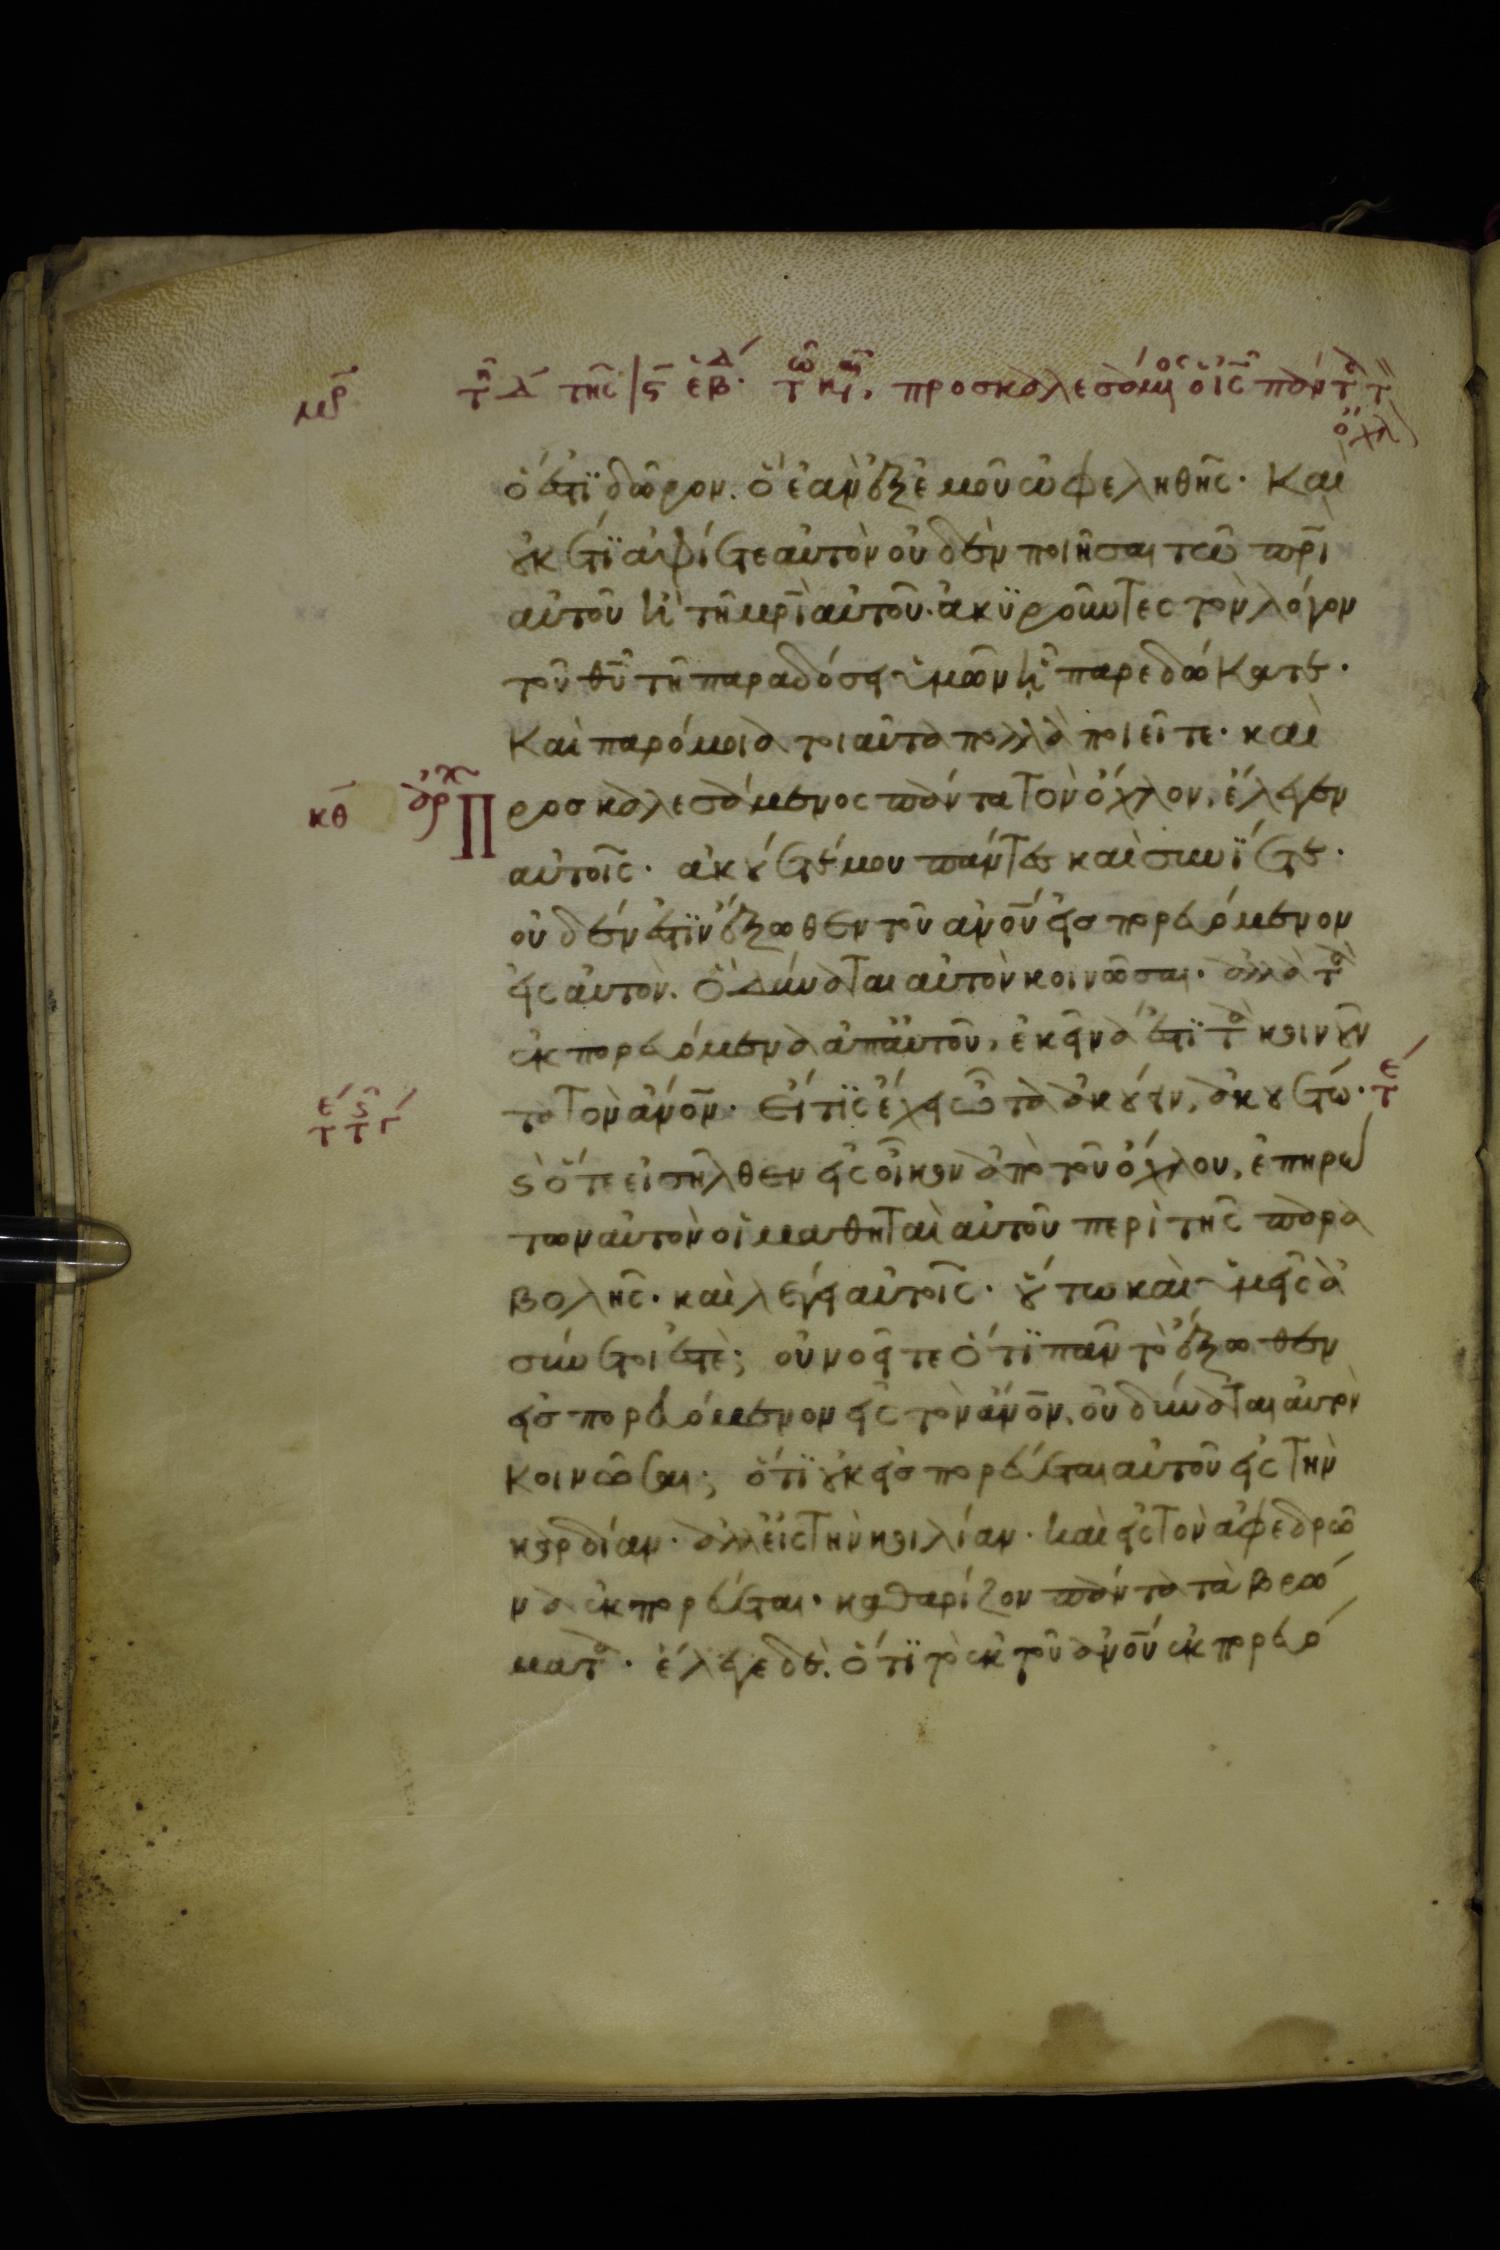 τῇ δ τῆς ϛ ἑβδ. τῷ καιρῷ, προσκαλεσάμενος ὁ ις πάντα τ
ὄχλ
ὅ ἐστι δῶρον. ὃ ἐὰν ἐξ ἐμοῦ ὠφεληθῆς· Καὶ
οὐκ ἔτι ἀφίετε αὐτὸν οὐδὲν ποιῆσαι τῶ πρι
αὐτοῦ ἢ τῆ μρι αὐτοῦ· ἀκυροῦντες τὸν λόγον
τοῦ θυ τῆ παραδόσει ὑμῶν ἧ παρεδώκατε·
Καὶ παρόμοια τοιαῦτα πολλὰ ποιεῖτε· καὶ
κθ ἀρχ Προσκαλεσάμενος πάντα τὸν ὄχλον, ἔλεγεν
αὐτοῖς· ἀκούετέ μου πάντες καὶ συνίετε·
οὐδέν ἐστιν ἔξωθεν τοῦ ανου εἰσπορευόμενον
εἰς αὐτὸν. ὃ δύναται αὐτὸν κοινῶσαι· ἀλλὰ τὰ
ἐκπορευόμενα ἀπ' αὐτοῦ, ἐκεῖνά ἐστι τὰ κοινοῦν
τα τὸν ανον· Εἴ τις ἔχει ὦτα ἀκούειν, ἀκουέτω·
ϛ ὅτε εἰσῆλθεν εἰς οἶκον ἀπὸ τοῦ ὄχλου, ἐπηρώ
των αὐτὸν οἱ μαθηταὶ αὐτοῦ περὶ τῆς παρα
βολῆς· καὶ λέγει αὐτοῖς· οὕτω καὶ ὑμεῖς ἀ
σύνετοί ἐστε; οὐ νοεῖτε ὅτι πᾶν τὸ ἔξωθεν
εἰσπορευόμενον εἰς τὸν ανον, οὐ δύναται αὐτὸν
κοινῶσαι; ὅτι οὐκ εἰσπορεύεται αὐτοῦ εἰς τὴν
καρδίαν· ἀλλ' εἰς τὴν κοιλίαν· καὶ εἰς τὸν ἀφεδρῶ
να ἐκπορεύεται· καθαρίζον πάντα τὰ βρώ
ματα· ἔλεγε δὲ. ὅτι τὸ ἐκ τοῦ ανου ἐκπορευό